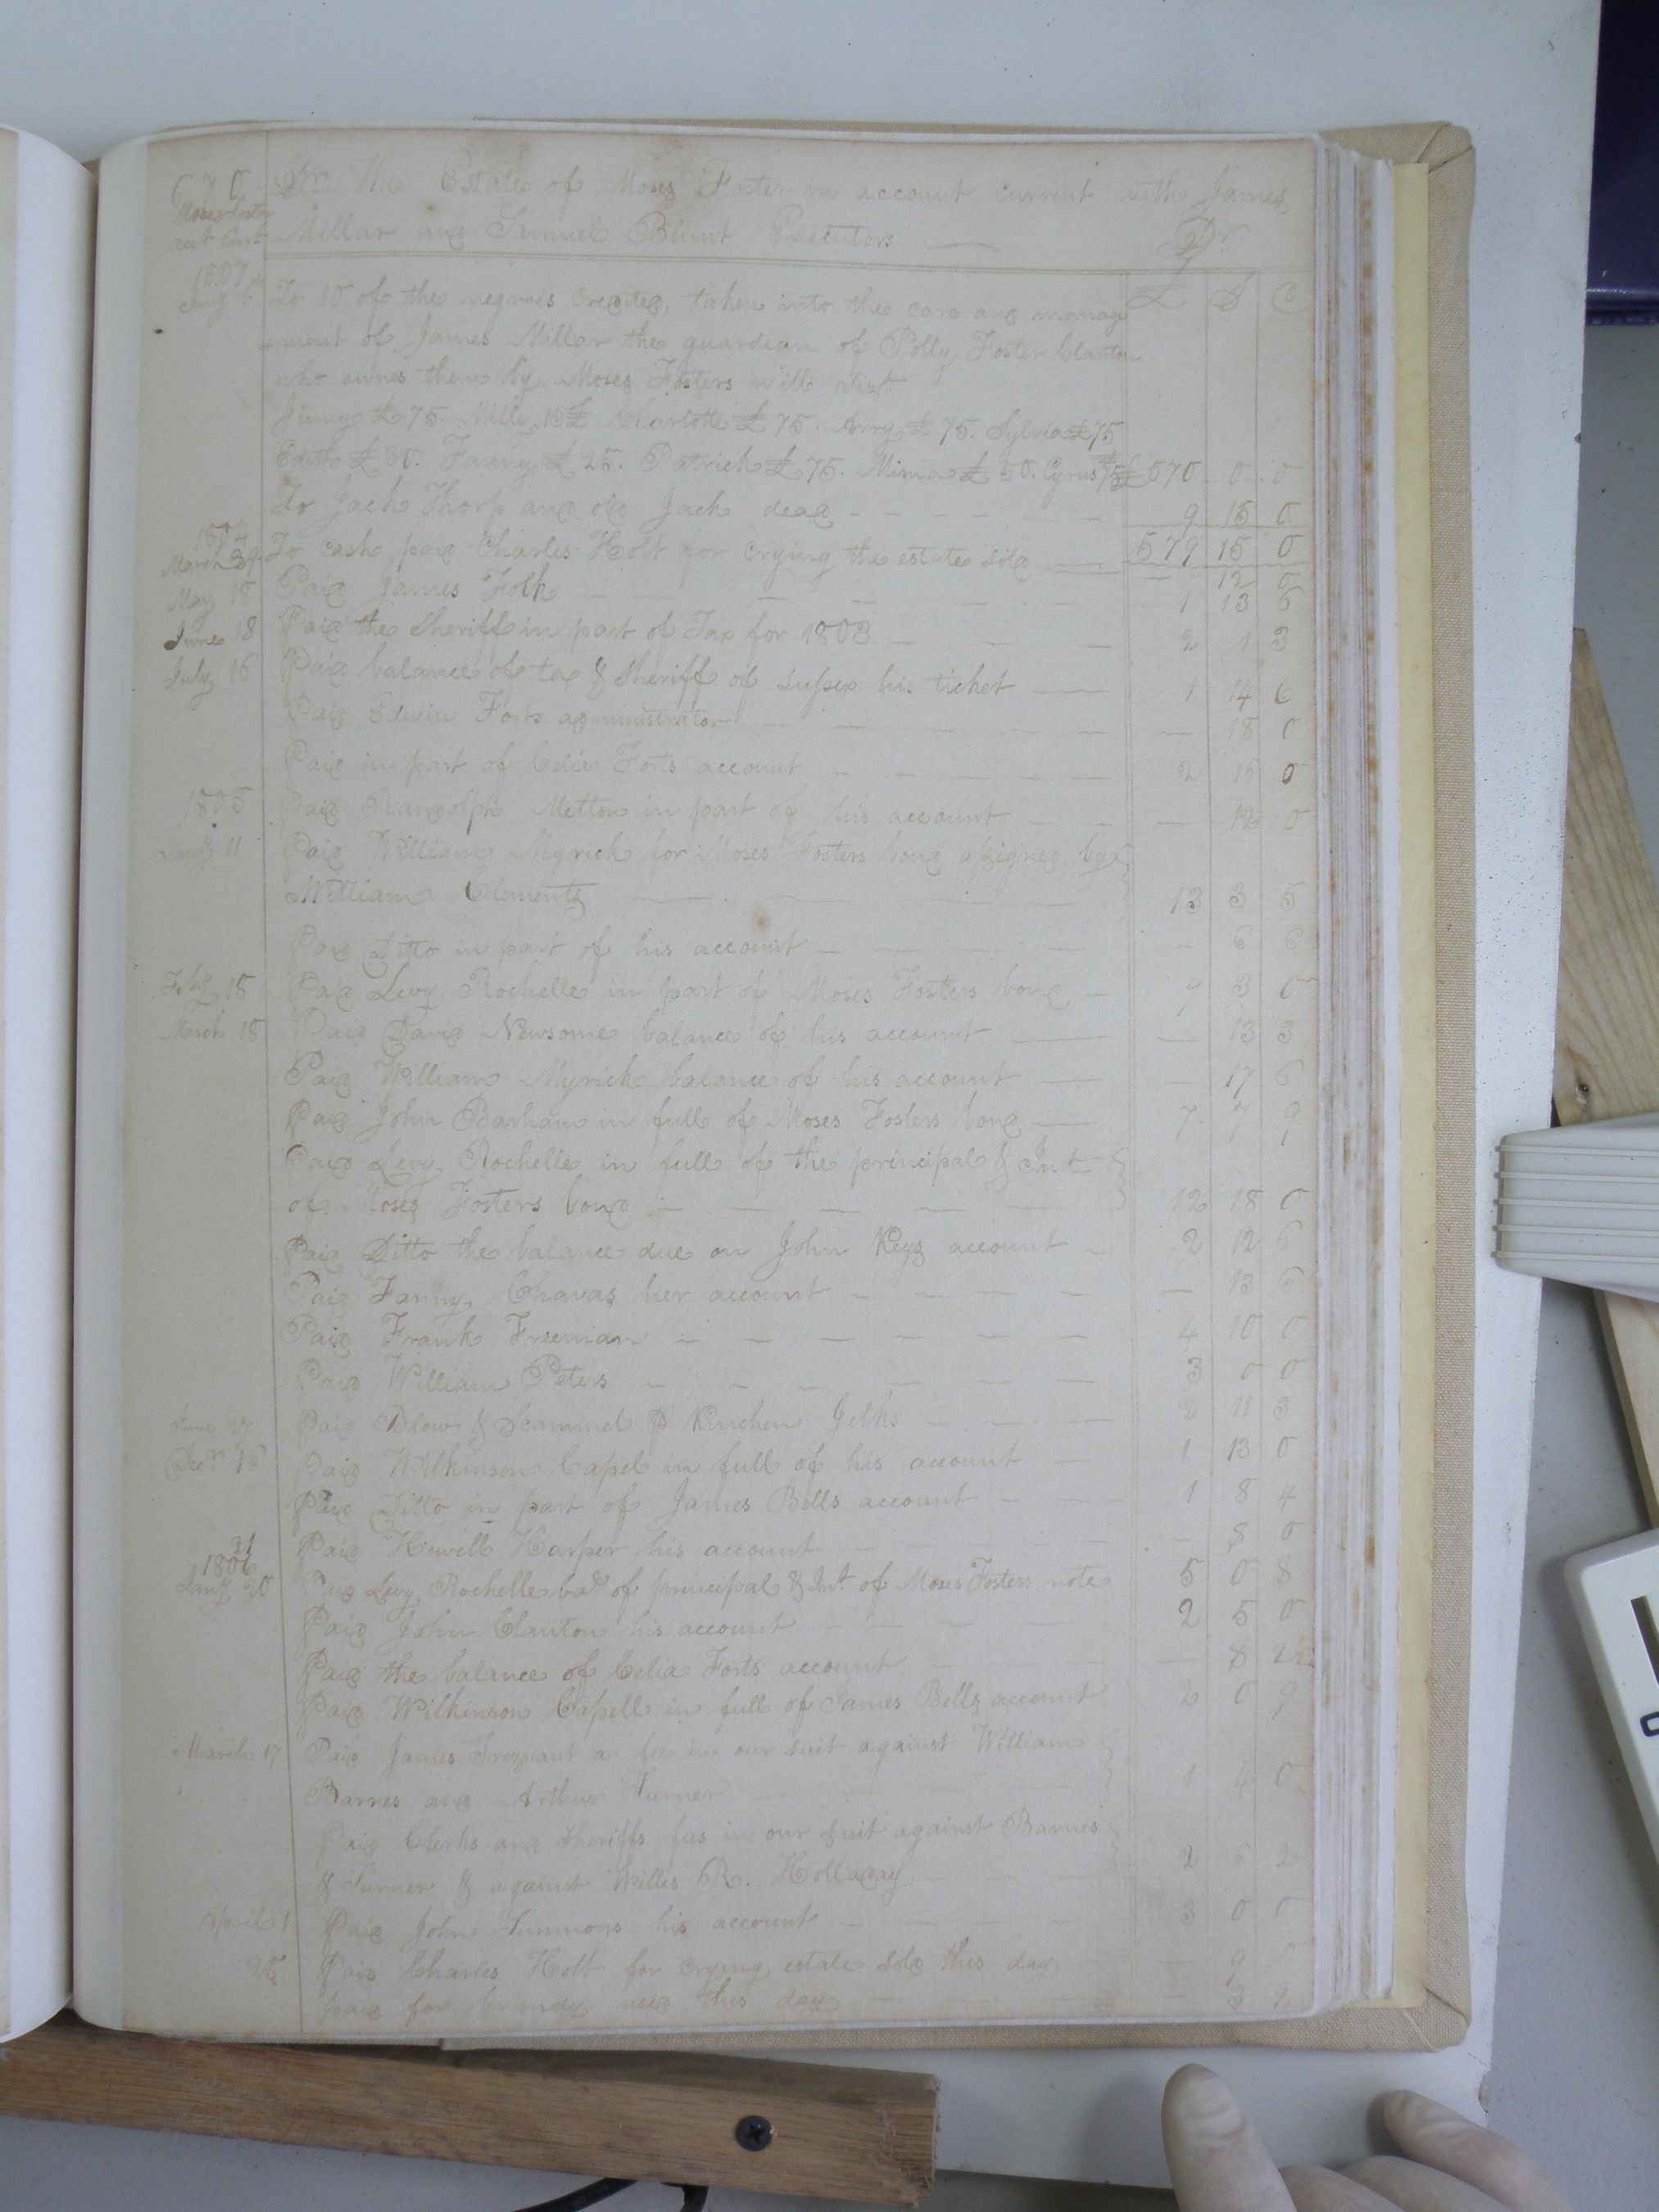 670 Dr. The Estate of Moses Foster in account current with James
Moses Foster acct Curt Millar and Samuel Blunt Executors — Dr
1807 £ S D
Augt To 10 of the negroes Credited, taken into the care and manag
ment of James Millar the guardian of Polly Foster Clanton
who ownes them by Moses Fosters will Vizt
Jinny £75. Milly 15£ Charlotte £75. Amy £75. Sylvia £75
Edith £30. Fanny £25. Patrick £75. Mima £50. Cyrus 75£ £570 0 0
To Jack Thorp and old Jack dead 9 15 0
March To cash paid Charles Holt for crying the estate sold 579 15 0
— 12 0
May 18 Paid James Folk 1 13 6
June 18 Paid the Sheriff in part of Tax for 1803 2 1 3
July 16 Paid balance of tax & Sheriff of Sussex his ticket 1 14 6
Paid Edwin Forts administrator — 18 0
Paid in part of Celia Forts account 2 16 0
1805 Paid Randolph Melton in part of his account — 12 0
Jany 11 Paid William Myrick for Moses Fosters bond assigned by
William Clements 13 3 5
Paid Ditto in part of his account — 6 6
Feby 15 Paid Levy Rochelle in part of Moses Fosters bond 9 3 0
March 15 Paid David Newsome balance of his account — 13 3
Paid William Myrick balance of his account — 17 6
Paid John Barham in full of Moses Fosters bond 7 7 9
Paid Levy Rochelle in full of the principal & Int
of Moses Fosters bond 12 18 0
Paid Ditto the balance due on John Keys account 2 12 6
Paid Fanny Chavas her account — 13 6
Paid Frank Freeman 4 10 0
Paid William Peters 3 0 0
June Paid Blow & Scammel p Kinchen Jelks 2 11 3
Decr 16 Paid Wilkinson Capel in full of his account 1 13 0
Paid Ditto in part of James Bells account 1 8 4
21 Paid Howell Harper his account — 8 0
1806
Jany 20 Paid Levy Rochelle bal of principal & Int of Moses Fosters note 5 0 8
Paid John Clanton his account 2 5 0
Paid the balance of Celia Forts account — 8 2½
Paid Wilkinson Capell in full of James Bells account 2 0 9
March 17 Paid James Trezvant a fee in our suit against William
Barnes and Arthur Turner 1 4 0
Paid Clerks and Sheriffs fees in our suit against Barnes
& Turner & against Willis R. Holladay 2 6 2
April 1 Paid John Simmons his account 3 0 0
25 Paid Charles Holt for crying estate sold this day — 9
paid for brandy used this day — 3 9